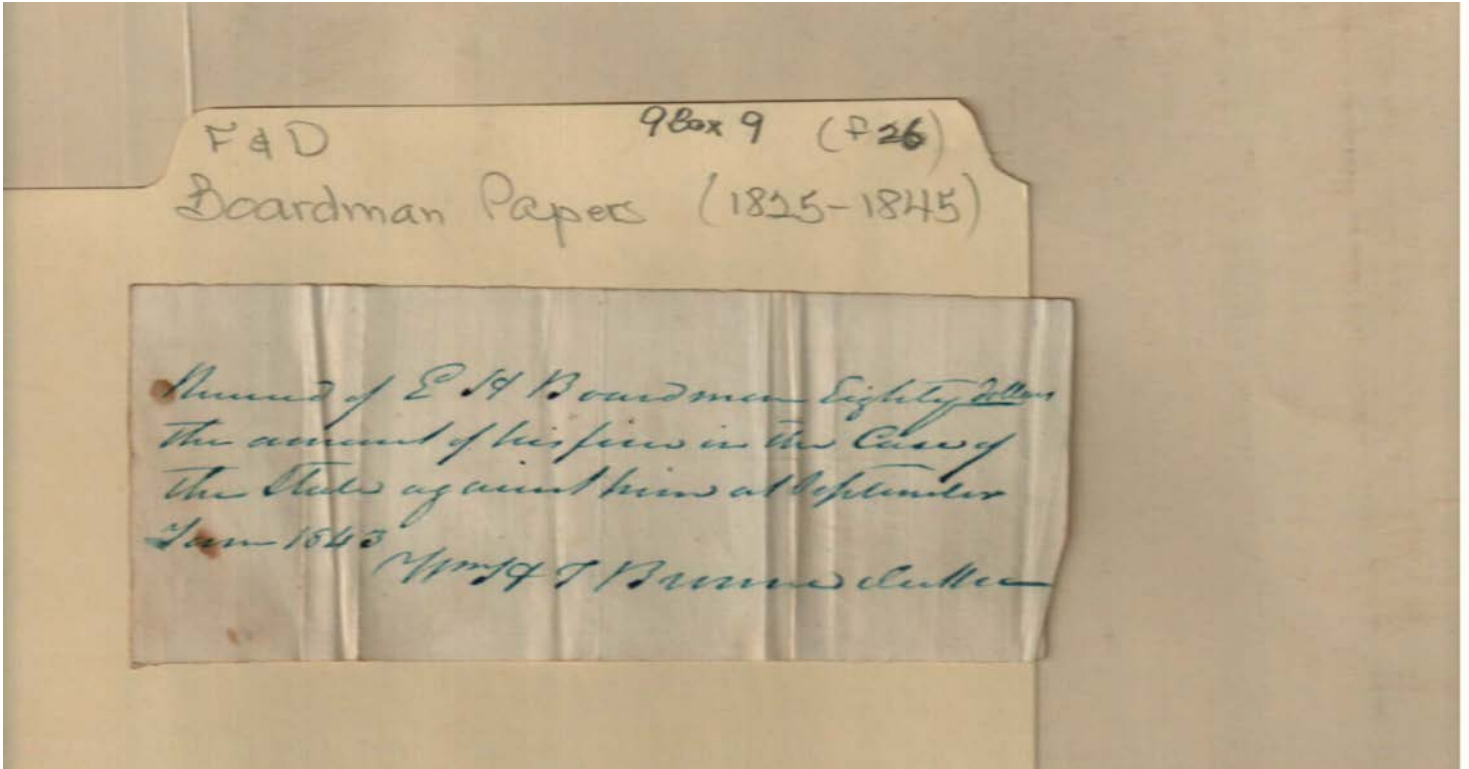 F & D
9 Box 9 (f 26)
Boardman Papers (1825-1845)
Received of E H Boardman Eighty dollars
the amount of his fine in the Case of
the State against him at September
Term 1843
Wm H T